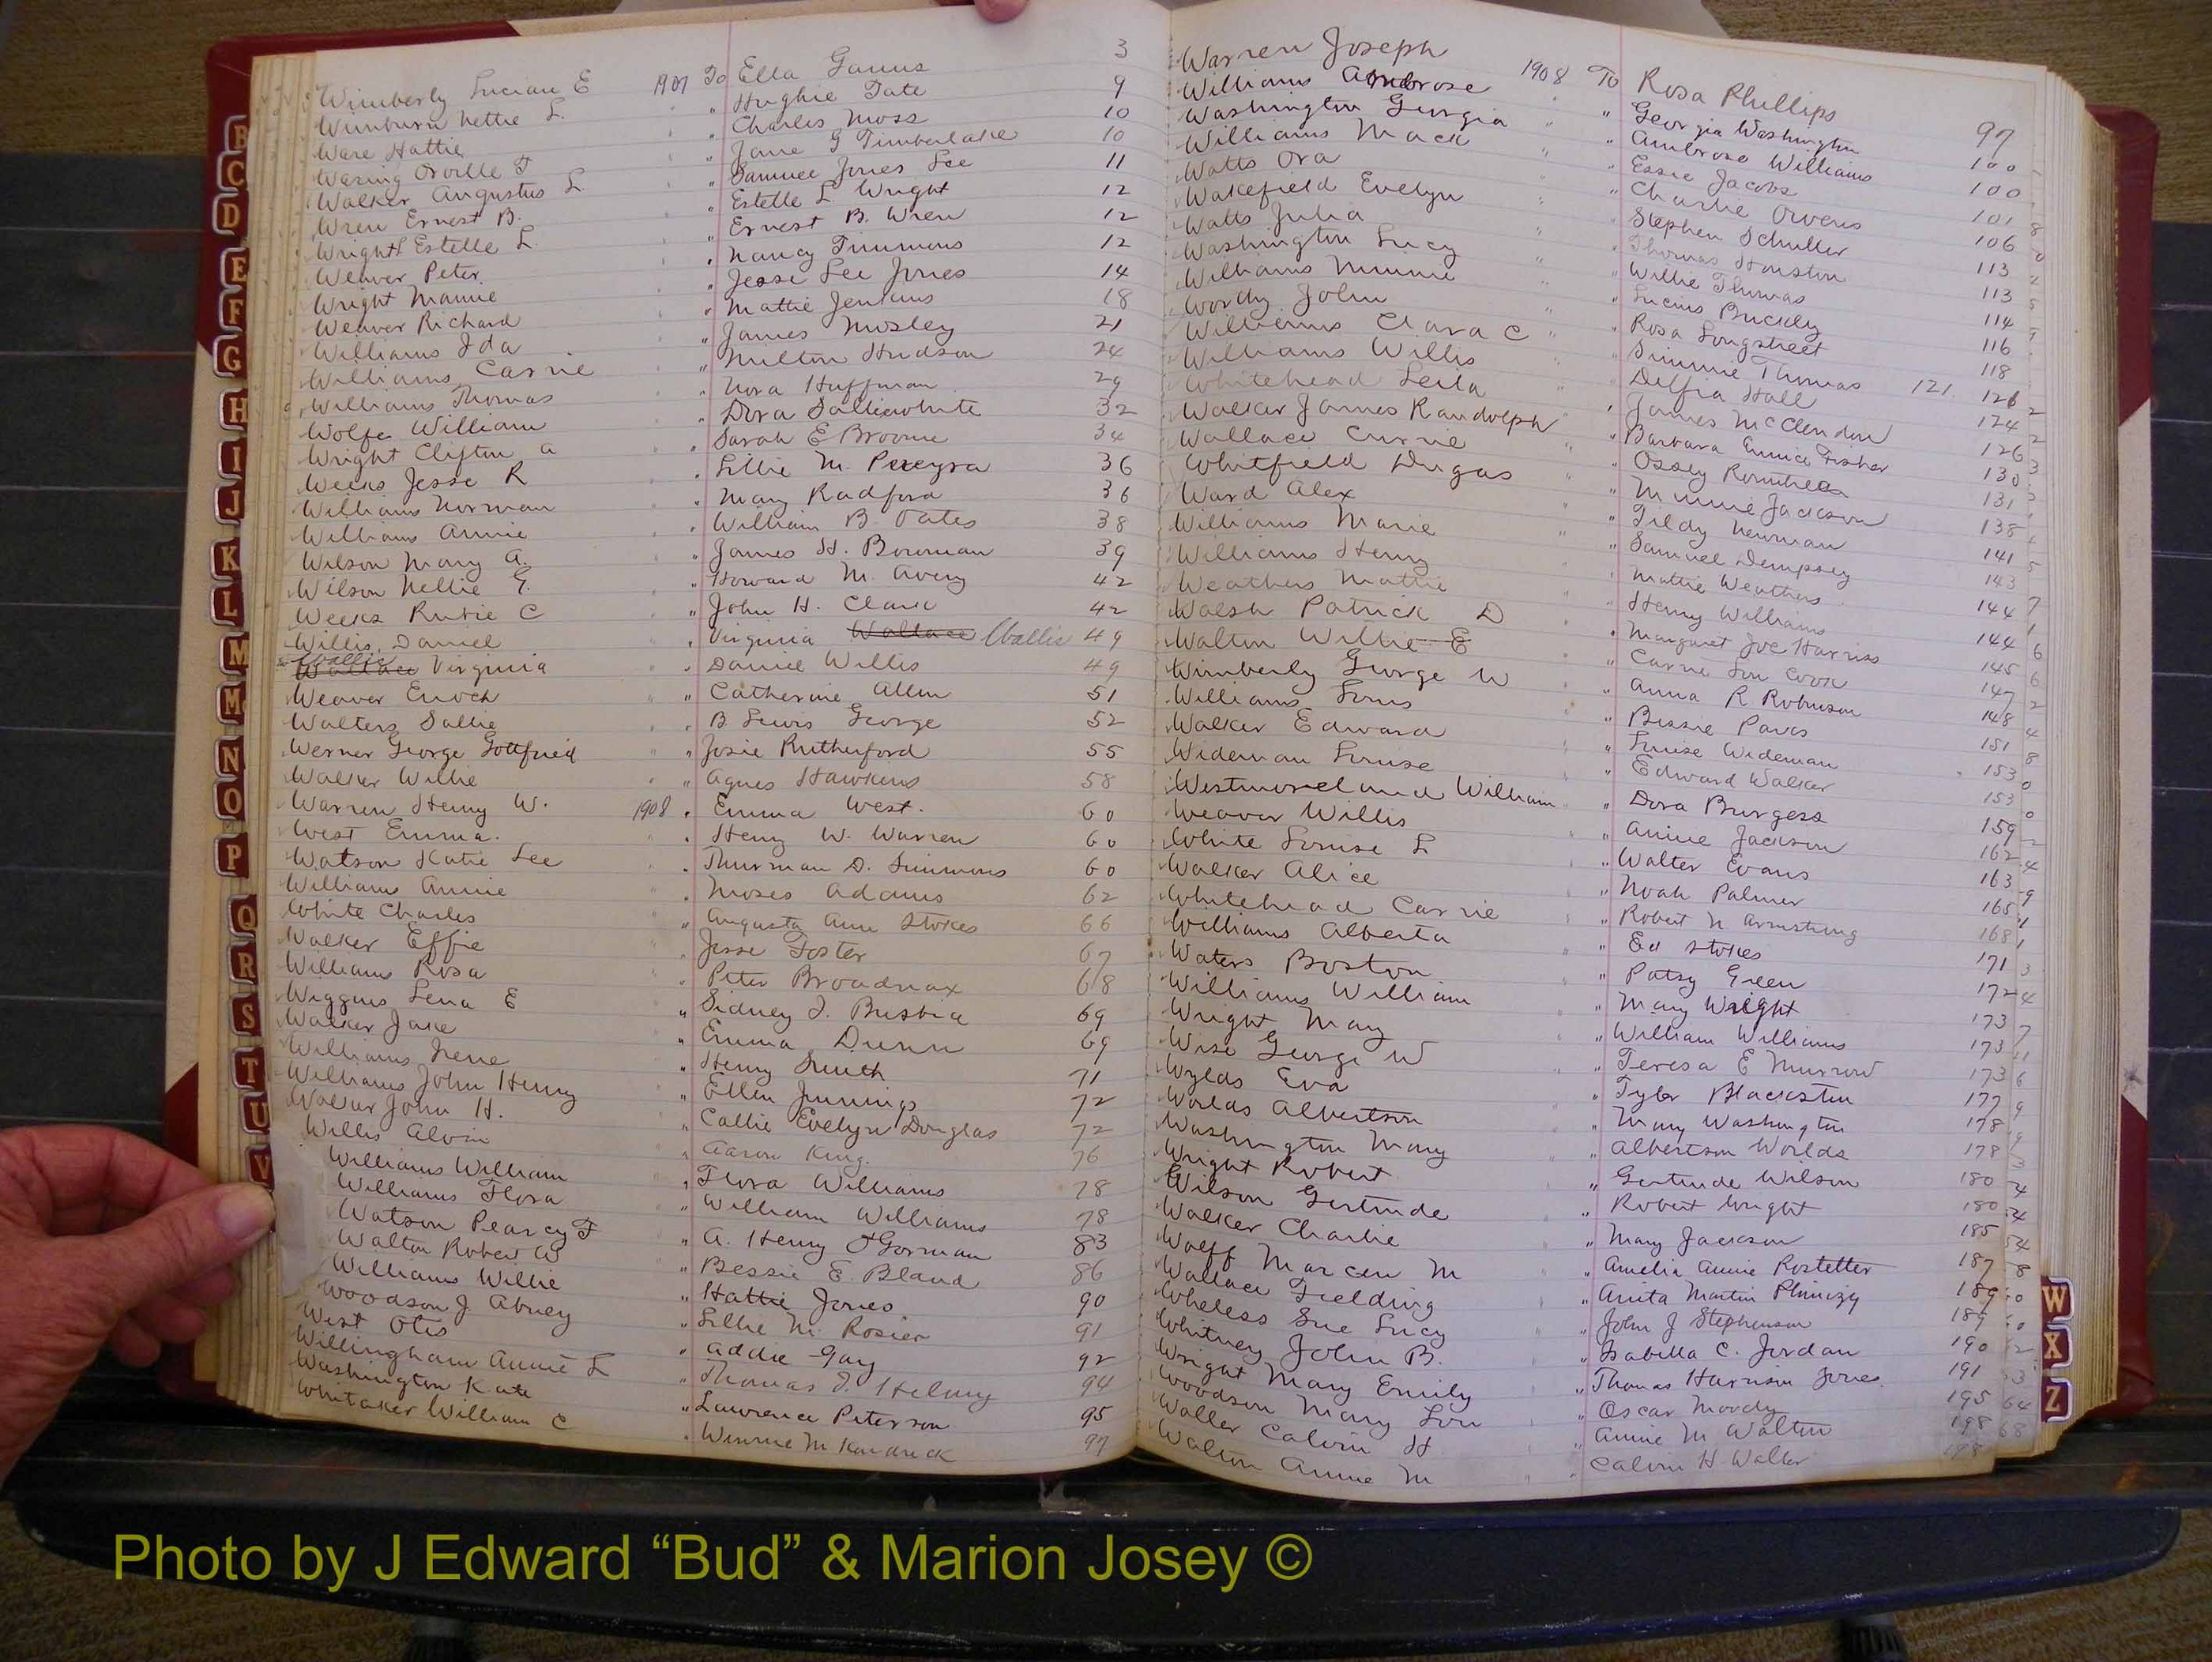 Wimberly Lucian E 1907 To Ella Ganus 3
Wimburn Nettie L. " Hughie Tate 9
Ware Hattie " Charles Moss 10
Waring Orville T " Jane G Timberlake 10
Walker Augustus L. " Samuel Jones Lee 11
Wren Ernest B. " Estelle L. Wright 12
Wright Estelle L. " Ernest B. Wren 12
Weaver Peter " Nancy Timmons 12
Wright Mamie " Jesse Lee Jones 14
Weaver Richard " Mattie Jenkins 18
Williams Ida " James Mosley 21
Williams Carrie " Milton Hudson 24
Williams Thomas " Nora Huffman 29
Wolfe William " Dora Salliewhite 32
Wright Clifton A " Sarah E Broome 34
Weeks Jesse R " Lillie M. Pereyra 36
Williams Norman " Mary Radford 36
Williams Annie " William B. Oates 38
Wilson Mary A. " James H. Bowman 39
Wilson Nellie G. " Howard M. Avery 42
Weeks Rubie C " John H. Clark 42
Willis, Daniel " Virginia Wallace Wallis 49
Wallis
Wallace Virginia " Daniel Willis 49
Weaver Enoch " Catherine Allen 51
Walters Sallie " B. Lewis George 52
Werner George Gottfried " Josie Rutherford 55
Walker Willie " Agnes Hawkins 58
Warren Henry W. 1908 " Emma West. 60
West Emma. " Henry W. Warren 60
Watson Katie Lee " Thurman D. Simmons 60
Williams Annie " Moses Adams 62
White Charles " Augusta Ann Stokes 66
Walker Effie " Jesse Foster 67
Williams Rosa " Peter Broadnax 68
Wiggins Lena E " Sidney J. Busbia 69
Walker Jake " Emma Dunn 69
Williams Irene " Henry Smith 71
Williams John Henry " Ellen Jennings 72
Walker John H. " Callie Evelyn Douglas 72
Willis Alvin " Aaron King. 76
Williams William " Flora Williams 78
Williams Flora " William Williams 78
Watson Pearcy F " A. Henry O'Gorman 83
Walton Robert W " Bessie E. Bland 86
Williams Willie " Hattie Jones 90
Woodson J. Abney " Lillie M. Rosier 91
West Otis " Addie Gay 92
Willingham Annie L " Thomas J. Hilony 94
Washington Kate " Lawrence Peterson 95
Whitaker William C " Winnie McKendrick 97
Warren Joseph 1908 To Rosa Phillips 97
Williams Ambrose " Georgia Washington 100
Washington Georgia " Ambrose Williams 100
Williams Mack " Essie Jacobs 101
Watts Ora " Charlie Owens 106
Wakefield Evelyn " Stephen Schuller 113
Watts Julia " Thomas Houston 113
Washington Lucy " Willie Thomas 114
Williams Minnie " Lucius Buckly 116
Wordy John " Rosa Longstreet 118
Williams Clara C " Simmie Thomas 121. 126
Williams Willis " Delfia Hall 124
Whitehead Leila " James McClendon 126
Walker James Randolph " Barbara Eunice Fisher 130
Wallace Currie " Ossey Rountree 131
Whitfield Dugas " Minnie Jackson 138
Ward Alex " Tildy Newman 141
Williams Marie " Samuel Dempsey 143
Williams Henry " Mattie Weathers 144
Weathers Mattie " Henry Williams 144
Walsh Patrick D " Margaret Joe Harriss 145
Walton Willie E " Carrie Lou Cook 147
Wimberly George W " Anna R Robinson 148
Williams Louis " Bessie Parks 151
Walker Edward " Louise Wideman 153
Wideman Louise " Edward Walker 153
Westmoreland William " Dora Burgess 159
Weaver Willis " Annie Jackson 162
White Louise L " Walter Evans 163
Walker Alice " Noah Palmer 165
Whitehead Carrie " Robert N Armstrong 168
Williams Alberta " Ed Stokes 171
Waters Boston " Patsy Green 172
Williams William " Mary Wright 173
Wright Mary " William Williams 173
Wise George W " Teresa E Murrow 173
Wylds Eva " Tyler Blackston 177
Worlds Albertson " Mary Washington 178
Washington Mary " Albertson Worlds 178
Wright Robert " Gertrude Wilson 180
Wilson Gertrude " Robert Wright 180
Walker Charlie " Mary Jackson 185
Wolff Marcen M " Amelia Annie Rostetter 187
Wallace Fielding " Anita Martin Phinizy 189
Wheless Sue Lucy " John J Stephenson 189
Whitney John B. " Isabella C. Jordan 190
Wright Mary Emily " Thomas Harrison Jones 191
Woodson Mary Lou " Oscar Moody 195
Waller Calvin H " Annie M Walton 198
Walton Annie M " Calvin H Waller 198
B
C
D
E
F
G
H
I
J
K
L
M
Mc
N
O
P
Q
R
S
T
U
V
W
X
Z
Photo by J Edward “Bud” & Marion Josey ©